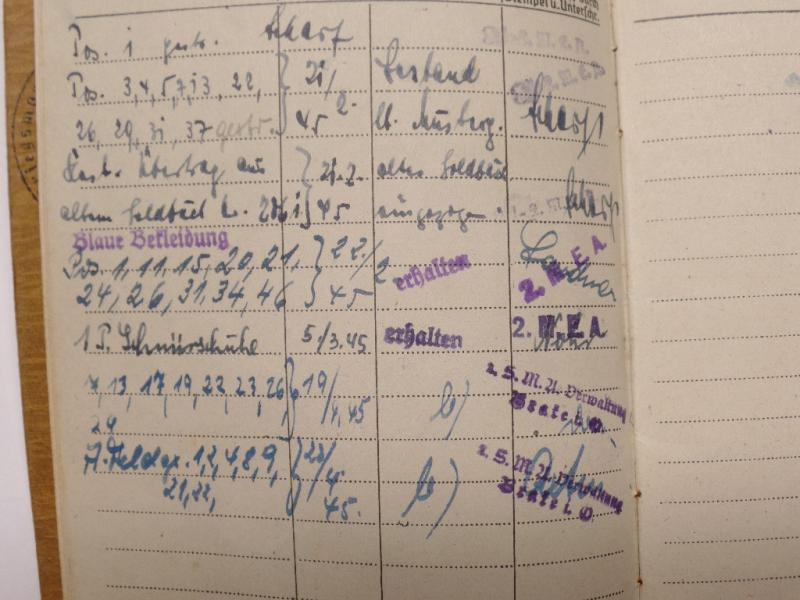 Stempel u. Unterschr.
Pos. 1 gestr. Scharf
Pos. 3, 4, 5, 7, 13, 22, 21/ Bestand
26, 29, 31, 37 gestr. 2. 45 lt. Scharf
Übertrag aus 21.2. altes Soldbuch
altem Soldbuch 45 eingezogen. Scharf
Blaue Bekleidung
Pos. 1, 11, 15, 20, 21, 22/2 erhalten
24, 26, 31, 34, 46 45 2. M.E.A
1 P. Schnürschuhe 5/3.45 erhalten 2. M.E.A
7, 13, 17, 19, 22, 23, 26, 19/4.45 b) 2. S. M. A. Verwaltung
29 Brake i. O.
A. Feldgr. 1, 2, 4, 8, 9, 23/4. b) 2. S. M. A. Verwaltung
21, 22, 45. Brake i. O.